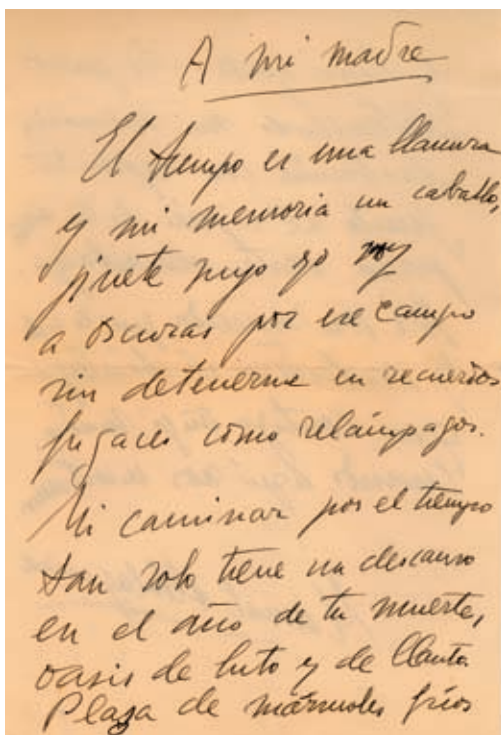 A mi madre
El tiempo es una llanura
y mi memoria un caballo,
jinete suyo yo voy
a oscuras por ese campo
sin detenerme en recuerdos
fugaces como relámpagos.
Mi caminar por el tiempo
tan solo tiene un descanso
en el año de tu muerte,
oasis de luto y de llanto.
Plaza de mármoles fríos